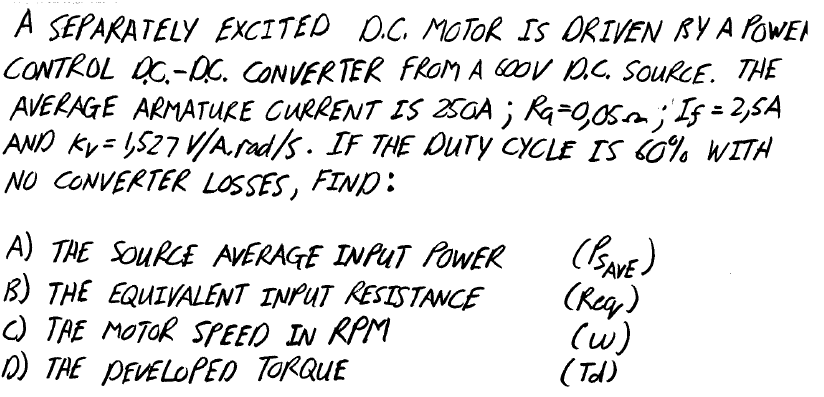 A SEPARATELY EXCITED D.C. MOTOR IS DRIVEN BY A POWER
CONTROL D.C.-D.C. CONVERTER FROM A 600V D.C. SOURCE. THE
AVERAGE ARMATURE CURRENT IS 250A ; Ra=0,05Ω ; If = 2,5A
AND Kv = 1,527 V/A.rad/s. IF THE DUTY CYCLE IS 60% WITH
NO CONVERTER LOSSES, FIND:
A) THE SOURCE AVERAGE INPUT POWER (PSAVE)
B) THE EQUIVALENT INPUT RESISTANCE (Req)
C) THE MOTOR SPEED IN RPM (ω)
D) THE DEVELOPED TORQUE (Td)